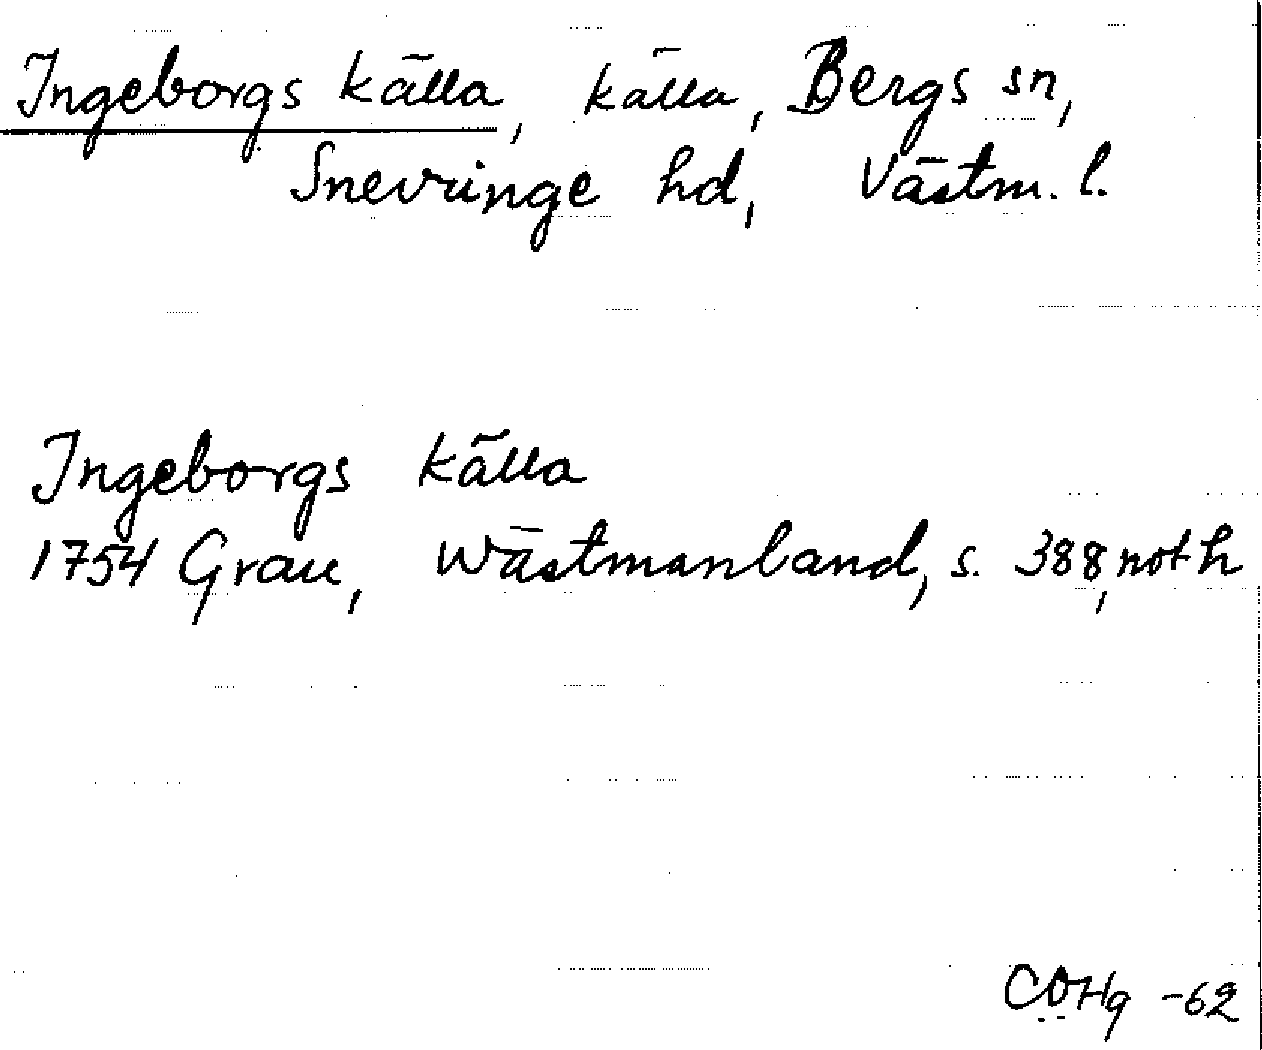 Ingeborgs källa, källa, Bergs sn,
Snevringe hd, Västm. l.
Ingeborgs källa
1754 Grau, Wästmanland, s. 388, not h
COHg -62